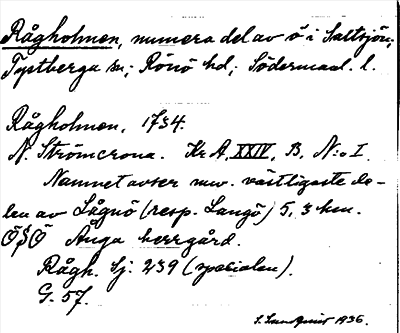 Rågholmen, numera del av ö i Saltsjön;
Tystberga sn; Rönö hd; Södermanl. l.
Rågholmen, 1734.
N. Strömcrona. Kr A, XXIV, B, N:o I.
Namnet avser nuv. västligaste de-
len av Långö (resp. Langö) 5,3 km.
ÖSÖ Ånga herrgård.
Rågh. Sj. 239 (specialen).
G. 57.
S. Lundqvist 1936.